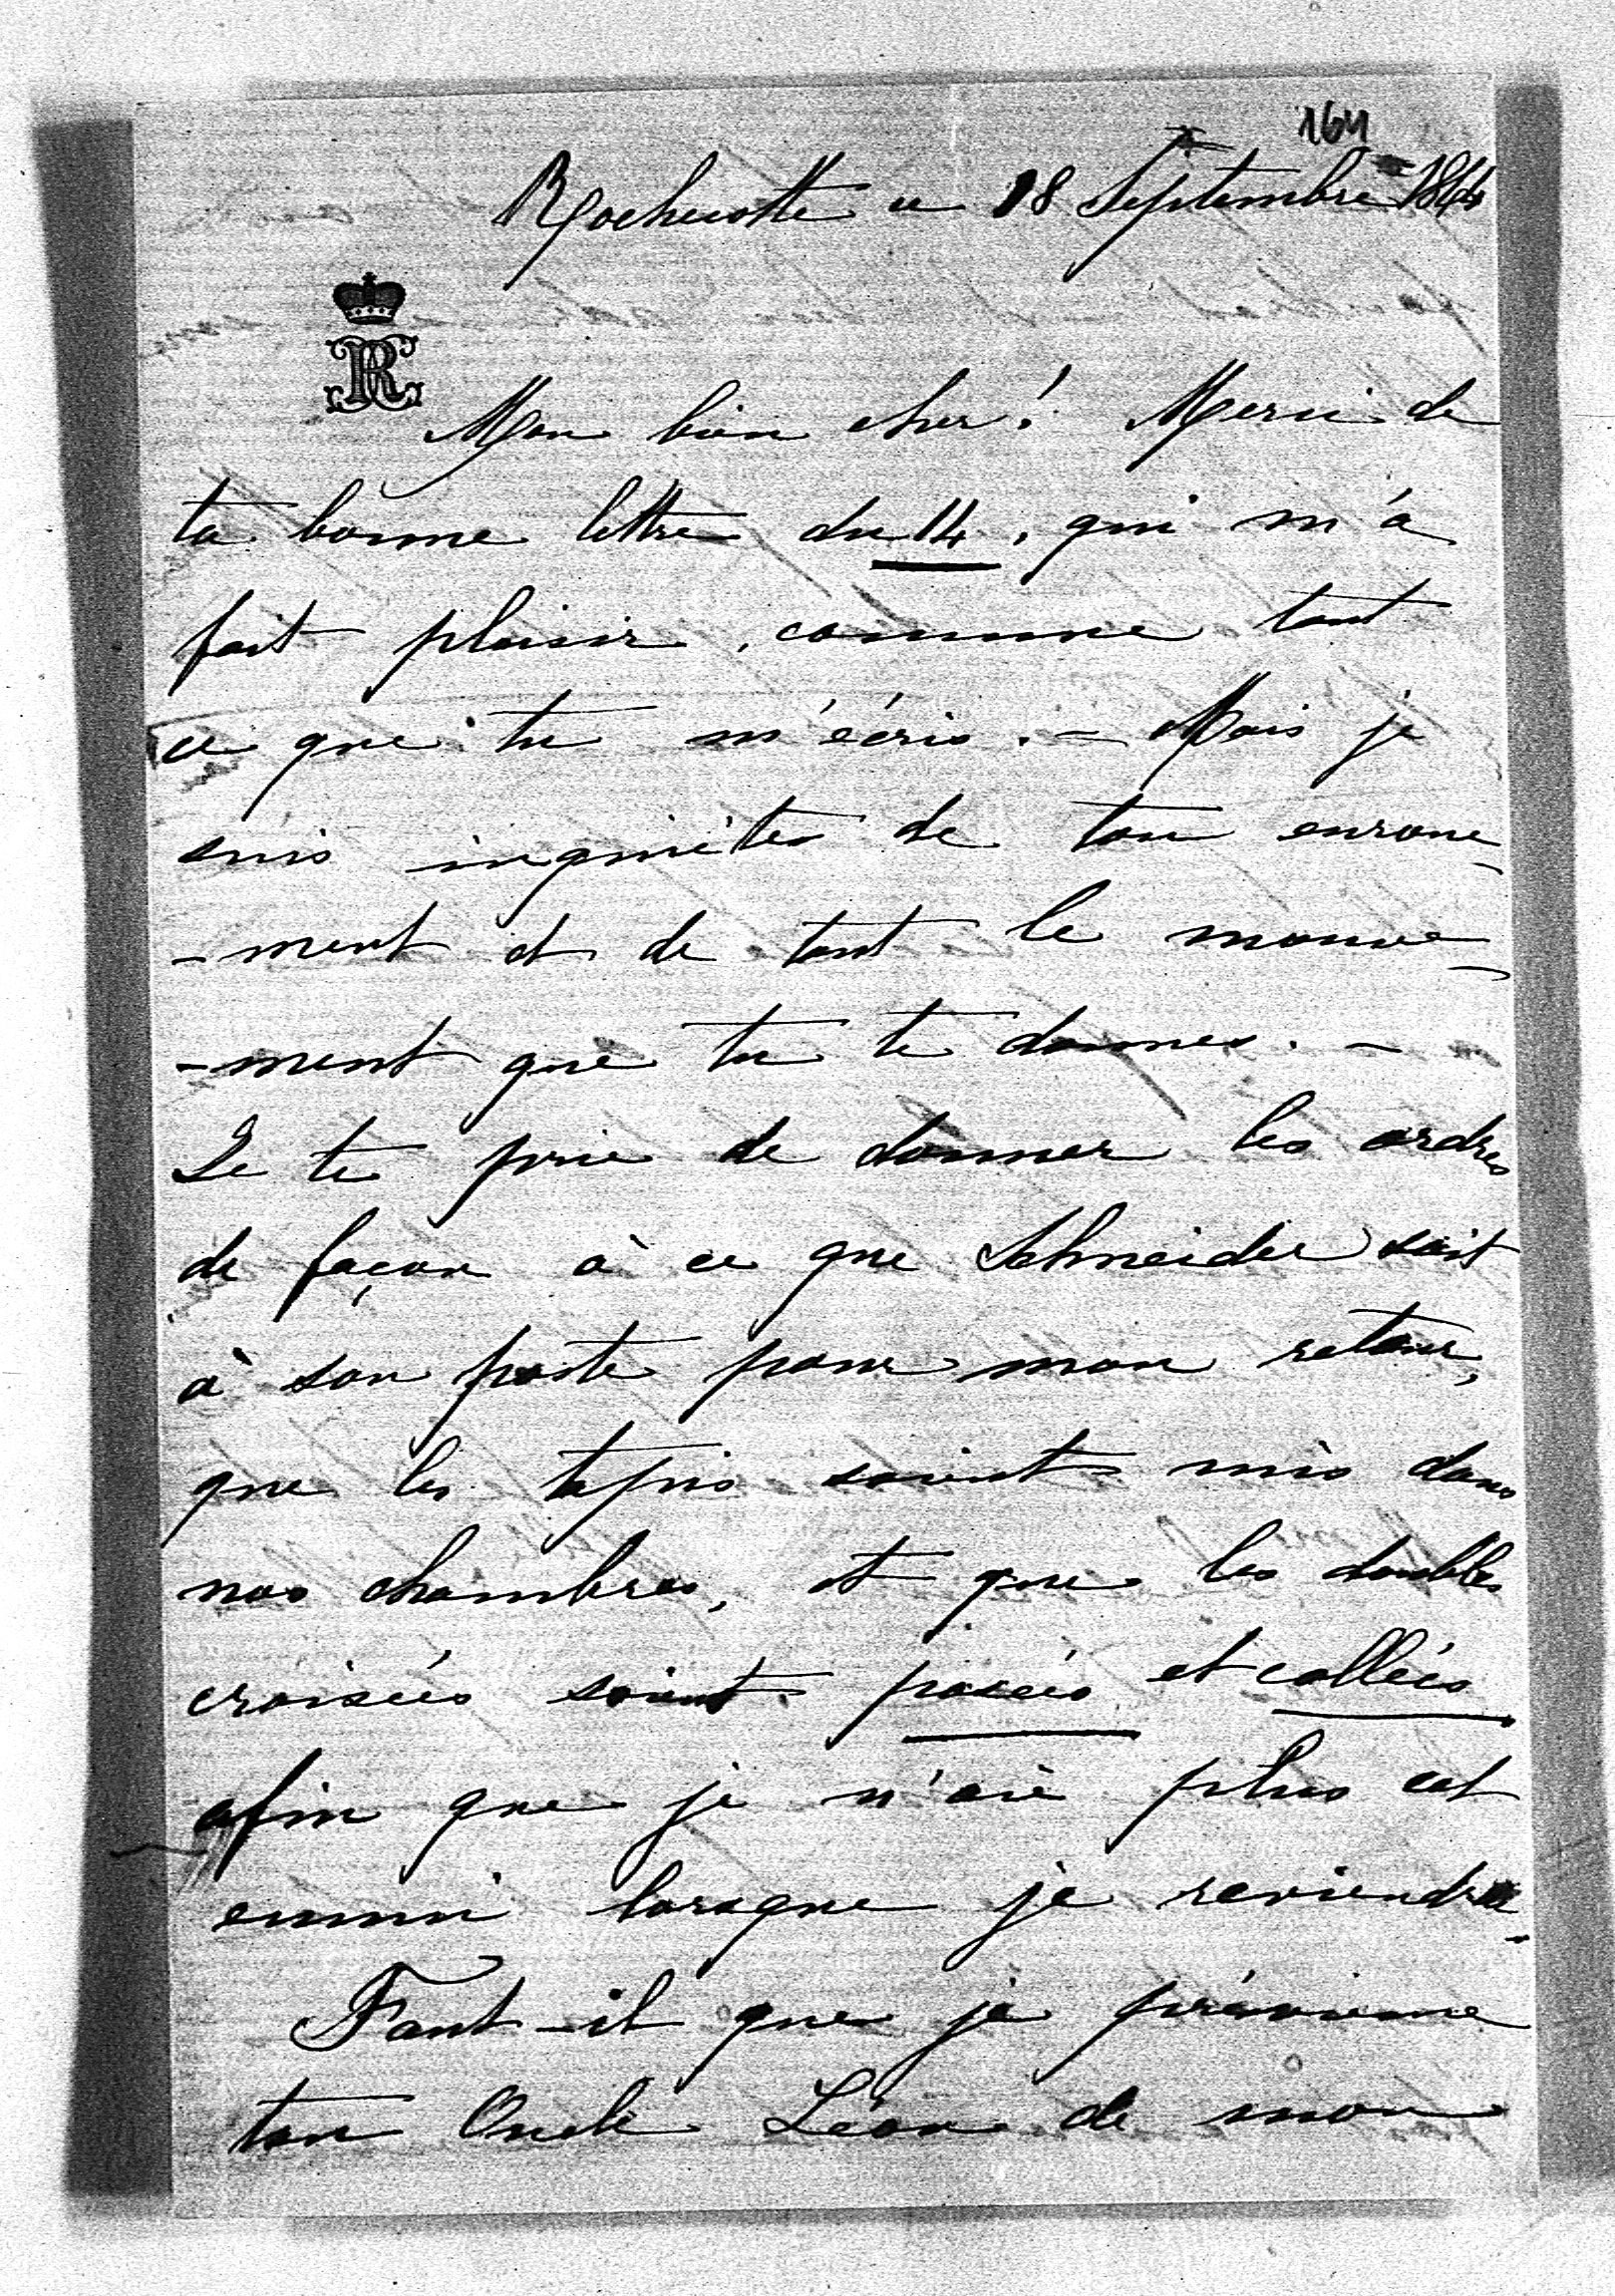 164
Rochecotte ce 18 Septembre 1844
R
Mon bien cher! Merci de
ta bonne lettre du 14, qui m'a
fait plaisir, comme tout
ce que tu m'écris. – Mais je
suis inquiètes de ton enroue-
-ment et de tout le mouve-
-ment que tu te donnes. –
Je te prie de donner les ordres
de façon à ce que Schneider soit
à son poste pour mon retour,
que les tapis soient mis dans
nos chambres, et que les doubles
croisées soient posées et collées
afin que je n'aie plus cet
ennui lorsque je reviendrai
Faut-il que je prévienne
ton Oncle Léon de mon